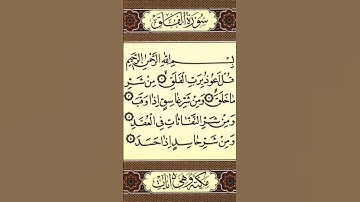 سورة الفلق
بسم الله الرحمن الرحيم
قل أعوذ برب الفلق من شر
ما خلق ومن شر غاسق إذا وقب
ومن شر النفاثات في العقد
ومن شر حاسد إذا حسد
مكية وهي آيات